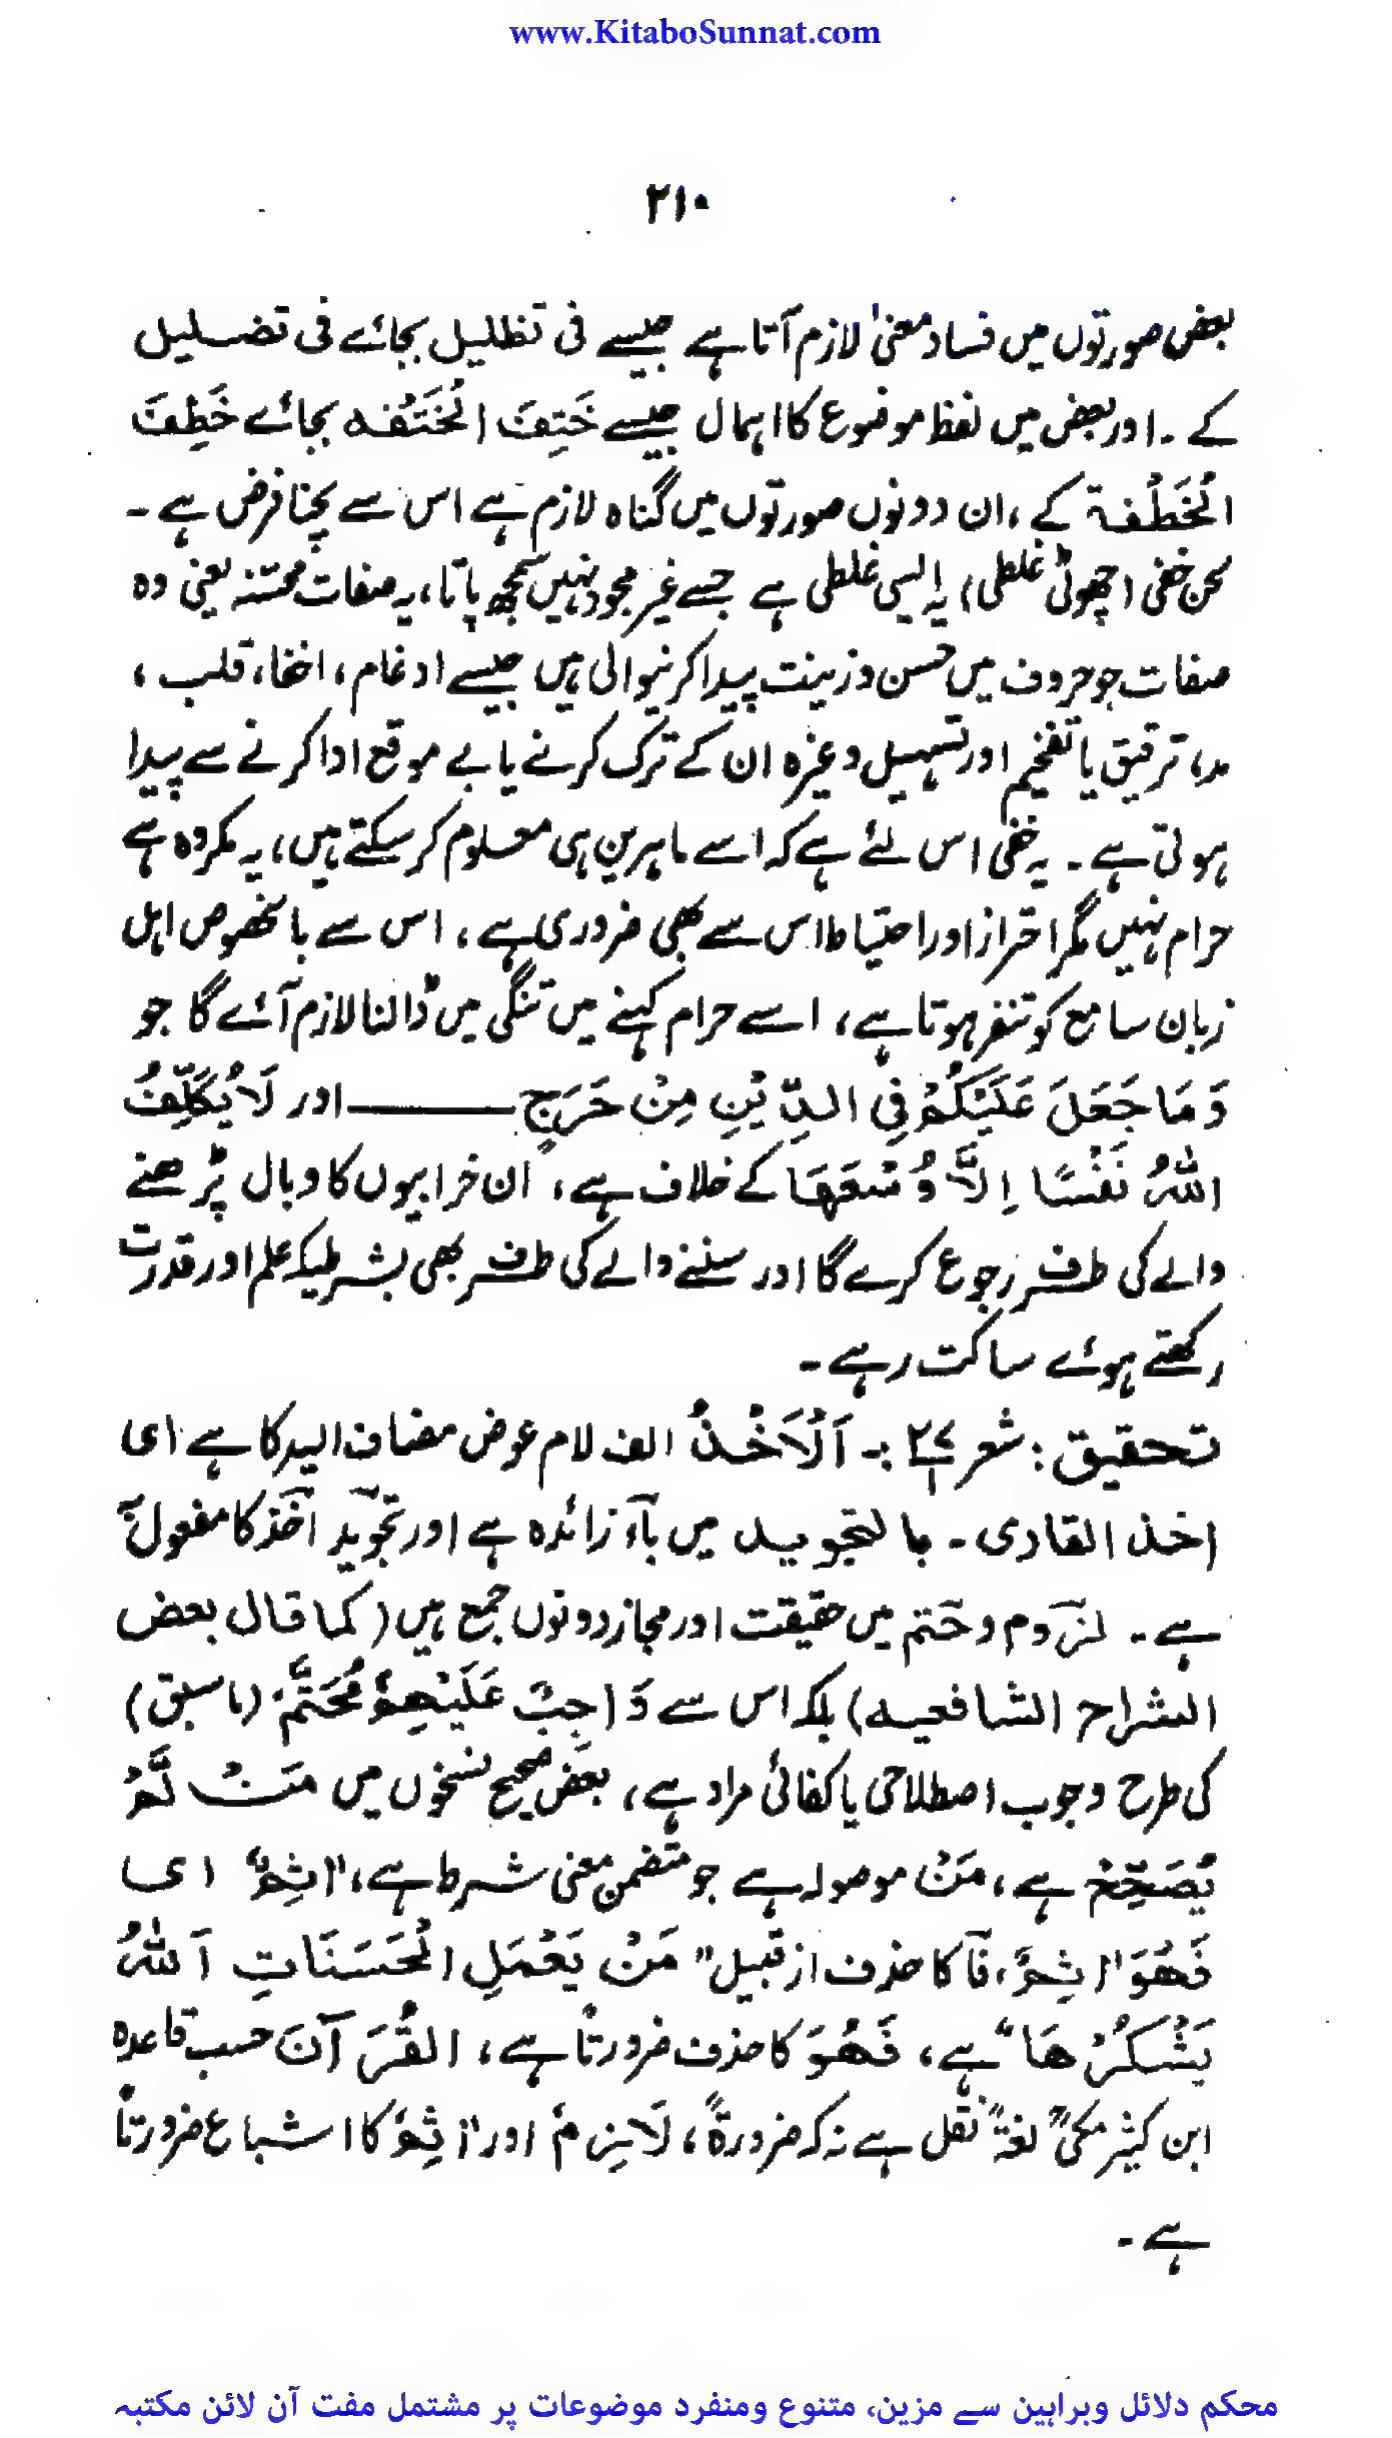 www.KitaboSunnat.com
۲۱۰
بعض صورتوں میں فساد معنیٰ لازم آتا ہے جیسے فی تظلیل بجائے فی تضلیل
کے ۔ اور بعض میں لفظ موضوع کا اہمال جیسے خَتِفَ الْخَتْفَه بجائے خَطِفَ
الْخَطْفَة کے ، ان دونوں صورتوں میں گناہ لازم ہے اس سے بچنا فرض ہے ۔
لحن خفی (چھوٹی غلطی) یہ ایسی غلطی ہے جسے غیر مجود نہیں سمجھ پاتا ، یہ صفات محسّنہ یعنی وہ
صفات جو حروف میں حسن و زینت پیدا کرنیوالی ہیں جیسے ادغام ، اخفا، قلب ،
مد، ترقیق یا تفخیم اور تسہیل وغیرہ ان کے ترک کرنے یا بے موقع ادا کرنے سے پیدا
ہوتی ہے ۔ یہ خفی اس لئے ہے کہ اسے ماہرین ہی معلوم کر سکتے ہیں ، یہ مکروہ ہے
حرام نہیں مگر احتراز اور احتیاط اس سے بھی ضروری ہے ، اس سے بالخصوص اہل
زبان سامع کو تنفر ہوتا ہے ، اسے حرام کہنے میں تنگی میں ڈالنا لازم آئے گا جو
وَمَا جَعَلَ عَلَيْكُمْ فِي الدِّيْنِ مِنْ حَرَجٍ ــــــــ اور لَا يُكَلِّفُ
اللهُ نَفْسًا اِلَّا وُسْعَهَا کے خلاف ہے ، ان خرابیوں کا وبال پڑھنے
والے کی طرف رجوع کرے گا اور سننے والے کی طرف بھی بشرطیکہ علم اور قدرت
رکھتے ہوئے ساکت رہے ۔
تحقیق : شعر ۲۷/۱ :۔ اَلْاَخْذُ الف لام عوض مضاف الیہ کا ہے ای
اخذ القاری ۔ بالتجوید میں بآء زائدہ ہے اور تجوید آخذ کا مفعول بہ
ہے ۔ لزوم و حتم میں حقیقت اور مجاز دونوں جمع ہیں (کما قال بعض
الشراح الشافعیہ) بلکہ اس سے وَاجِبٌ عَلَيْهِمُ مُحَتَّمٌ (ما سبق)
کی طرح وجوب اصطلاحی یا کفائی مراد ہے ، بعض صحیح نسخوں میں مَنْ لَّمْ
يُصَحِّحْ ہے ، مَنْ موصولہ ہے جو متضمن معنی شرط ہے ، "اٰثِمٌ" ای
فَهُوَ اٰثِمٌ، فآ کا حذف از قبیل "مَنْ يَعْمَلِ الْحَسَنَاتِ اَللهُ
يَشْكُرُهَا" ہے ، فَهُوَ کا حذف ضرورتاً ہے ، القُرَآنَ حسب قاعدہ
ابن کثیر مکیؒ لغۃً نقل ہے نہ کہ ضرورۃً ، لَازِمٌ اور اٰثِمٌ کا اشباع ضرورتاً
ہے ۔
محکم دلائل وبراہین سے مزین، متنوع ومنفرد موضوعات پر مشتمل مفت آن لائن مکتبہ